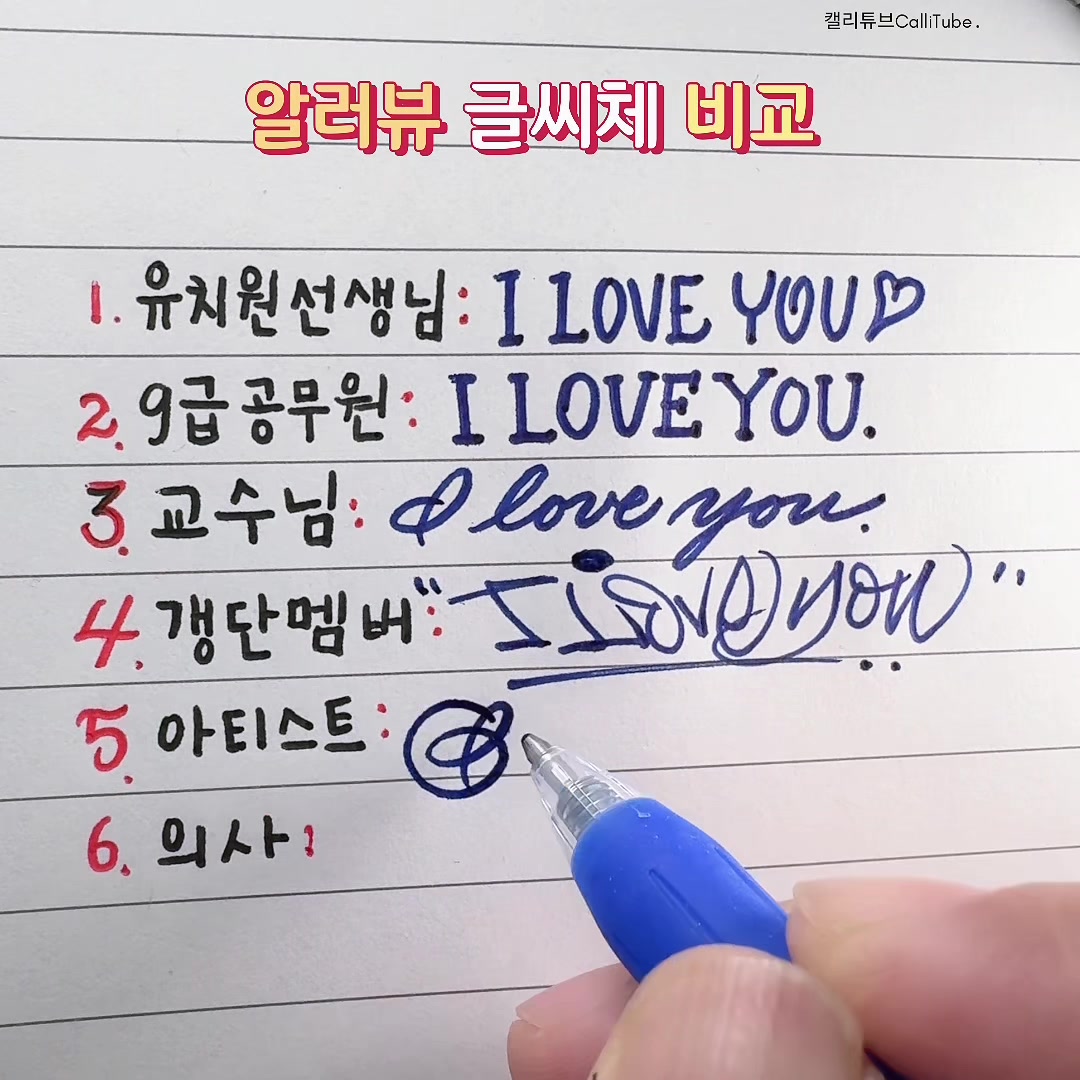 캘리튜브CalliTube.
알러뷰 글씨체 비교
1. 유치원선생님: I LOVE YOU♡
2. 9급공무원: I LOVE YOU.
3. 교수님: I love you.
4. 갱단멤버: "I LOVE YOU"
5. 아티스트: I
6. 의사: